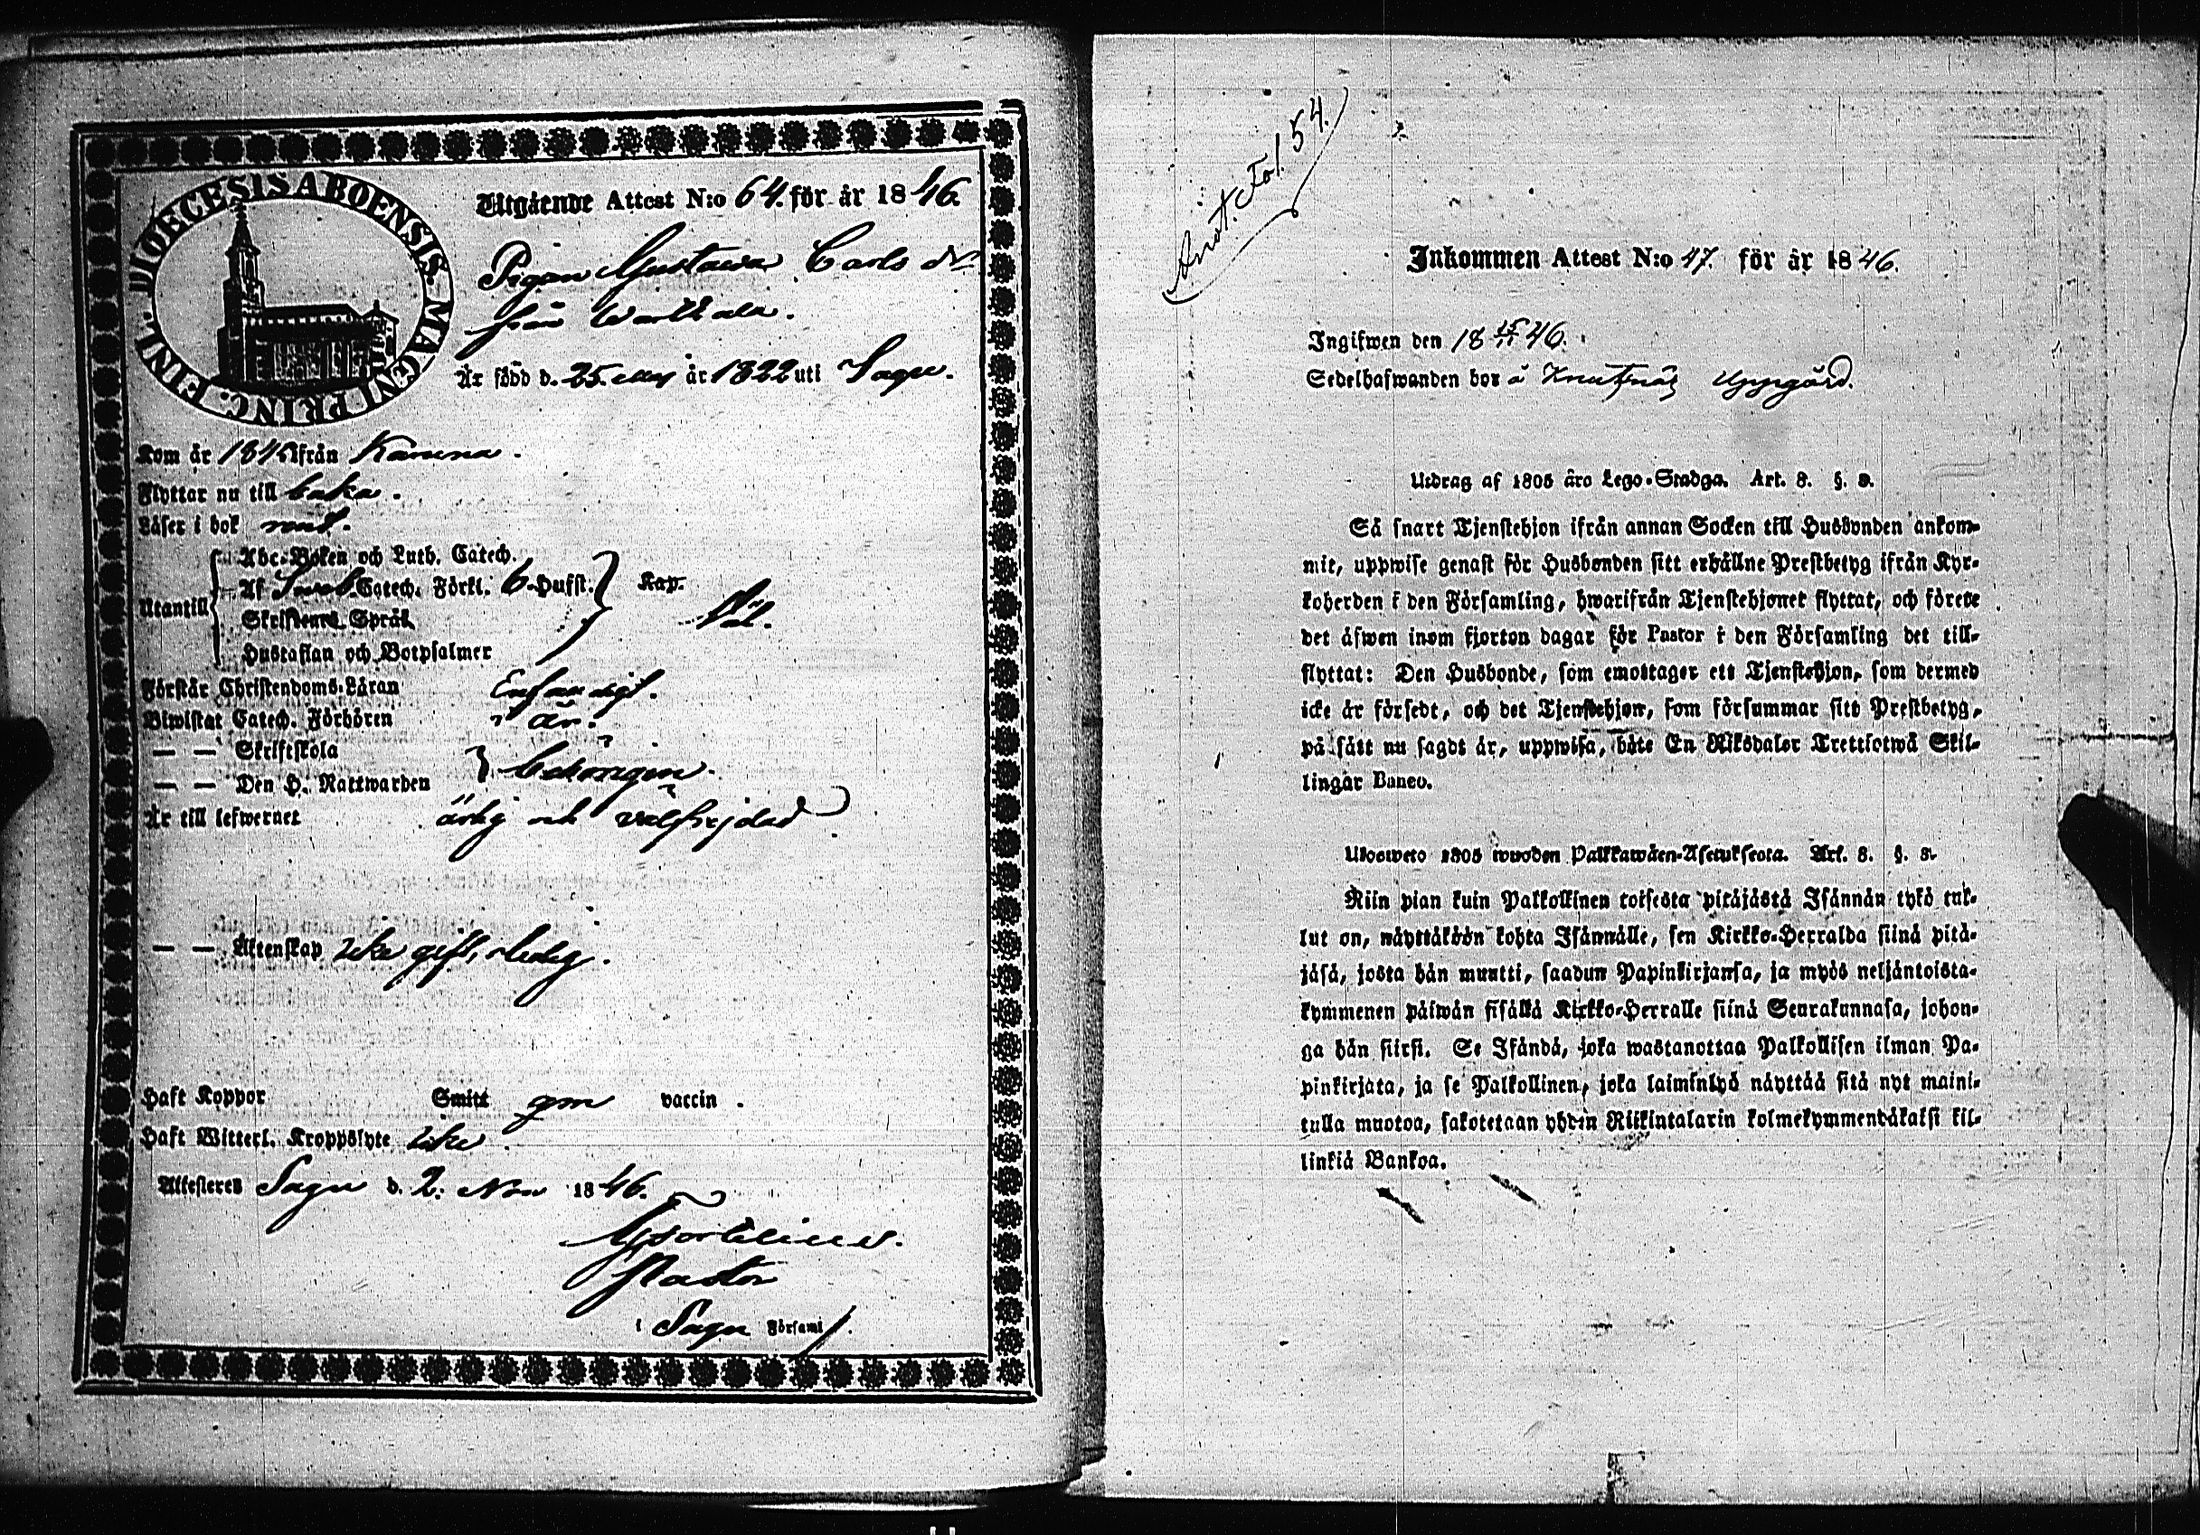 DIOECESIS ABOENSIS. MAGNI PRINC. FINL.
Utgående Attest N:o 64. för år 1846.
Pigan Gustava Carls dr
från Warkala.
Är född d. 25. Maj år 1822 uti Sagu.
Kom år 184 ifrån Karuna.
Flyttar nu till baka.
Läser i bok rent.
Utantill
Abc-Boken och Luth. Catech.
Af Sveb. Catech. Förkl. 6. Hufst. Kap.
Skriftenes Språk
Hustaflan och Botpsalmer
Väl.
Förstår Christendoms-Läran Enfaldigt.
Biwistat Catech. Förhören i år.
— — Skriftskola
— — Den H. Nattwarden behörigen.
Är till lefwernet ärlig och välfrejdad
— — Äktenskap icke gift, ledig.
Haft Koppor Smitt gm vaccin.
Haft Witterl. Kroppslyte icke
Attesteres Sagu d. 2. Nov 1846.
Pastor
i Sagu Församl.
Anot. Fol. 54.
Inkommen Attest N:o 47. för år 1846.
Ingifwen den 18 15/11 46.
Sedelhafwanden bor å Knutnäs Uppgård.
Utdrag af 1805 års Lego-Stadga. Art. 8. §. 3.
Så snart Tjenstehjon ifrån annan Socken till Husbonden ankom-
mit, uppwise genast för Husbonden sitt erhållne Prestbetyg ifrån Kyr-
koherden i den Församling, hwarifrån Tjenstehjonet flyttat, och förete
det äfwen inom fjorton dagar för Pastor i den Församling det till-
flyttat: Den Husbonde, som emottager ett Tjenstehjon, som dermed
icke är försedt, och det Tjenstehjon, som försummar sitt Prestbetyg,
på sätt nu sagdt är, uppwisa, böte En Riksdaler Trettiotwå Skil-
lingar Banco.
Uloswето 1805 wuoden Palkkawäen-Asetuksesta. Art. 8. §. 3.
Niin pian kuin Palkollinen toisesta pitäjästä Isännän tykö tul-
lut on, näyttäköön kohta Isännälle, sen Kirkko-Herralda siinä pitä-
jäsä, josta hän muutti, saadun Papinkirjansa, ja myös neljäntoista-
kymmenen päiwän sisällä Kirkko-Herralle siinä Seurakunnasa, johon-
ga hän siirsi. Se Isändä, joka wastanottaa Palkollisen ilman Pa-
pinkirjata, ja se Palkollinen, joka laiminlyö näyttää sitä nyt maini-
tulla muotoa, sakotetaan yhden Riikintalarin kolmekymmentäkaksi kil-
linkiä Bankoa.